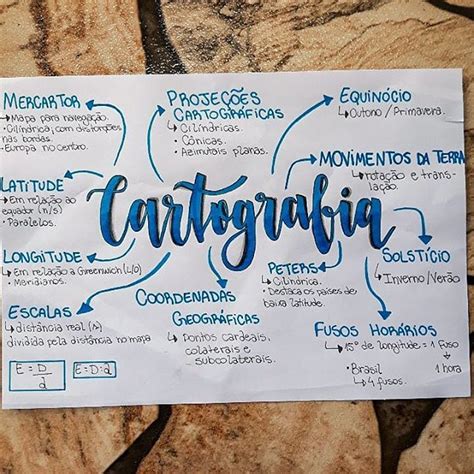 MERCARTOR
→ Mapa para navegação
• Cilíndrica, com distorções
nas bordas.
• Europa no centro.
PROJEÇÕES
CARTOGRÁFICAS
↳ Cilíndricas.
• Cônicas.
• Azimutais planas.
EQUINÓCIO
↳ Outono / Primavera.
MOVIMENTOS DA TERRA
↳ rotação e trans-
lação.
LATITUDE
↳ Em relação ao
equador (n/s)
• Paralelos.
Cartografia
LONGITUDE
↳ Em relação a Greenwich (L/O)
• Meridianos.
SOLSTÍCIO
↳ Inverno / Verão
PETERS
↳ Cilíndrica.
• Destaca os países de
baixa latitude.
COORDENADAS
GEOGRÁFICAS
↳ Pontos cardeais,
colaterais e
subcolaterais.
ESCALAS
↳ distância real
dividida pela distância no mapa
E = D
d
E = D : d
FUSOS HORÁRIOS
↳ 15° de longitude = 1 fuso
↓
1 hora
• Brasil
↳ 4 fusos.